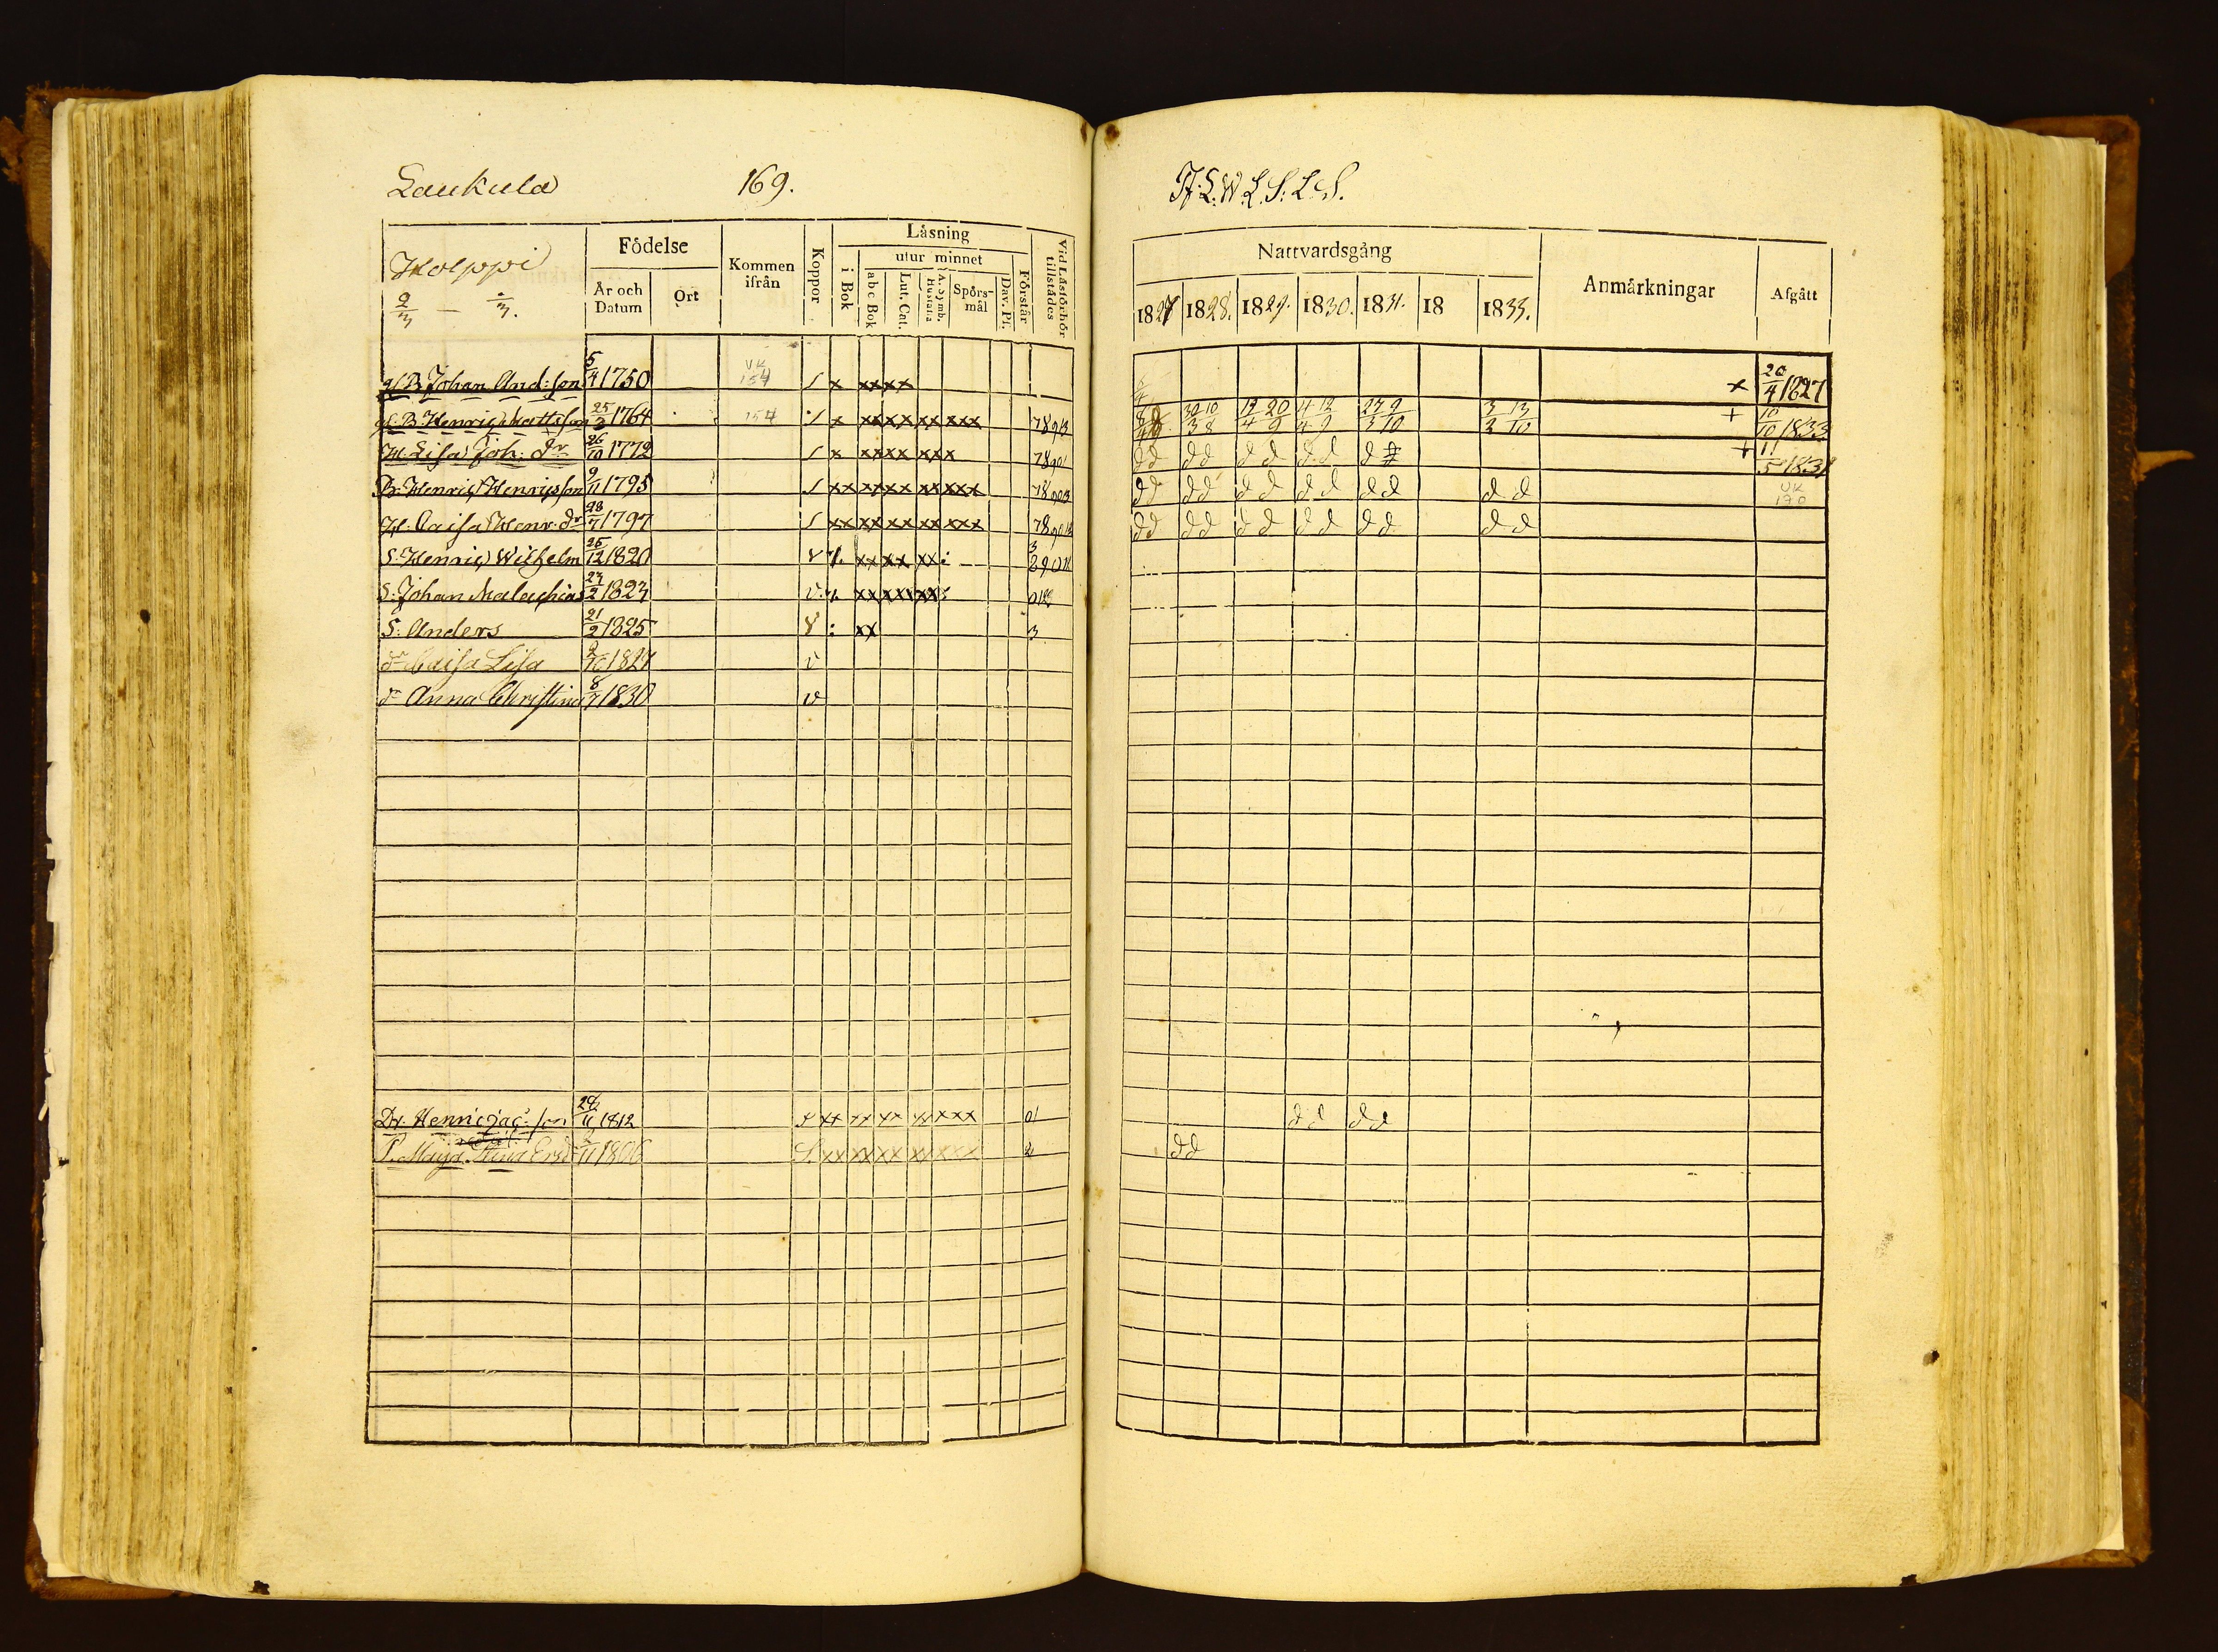 Laukula 169.
Holppi
2/3 — 2/3.
Födelse
År och Datum
Ort
Kommen ifrån
Koppor
Läsning
i Bok
utur minnet
abc Bok
Lut. Cat.
A. Symb. Hustafla
Spörsmål
Dav. Ps.
Förstår
Vid Läsförhör tillstådes
gl. B. Johan And:son 5/4 1750 VK 154 / x xx xx
gl. B. Henric Mattsson 25/3 1764 154 / x xx xx xx xxx 78913
H. Lisa Joh: dr 26/10 1772 / x xx xx xxx 78901
B. Henric Henricsson 9/11 1795 / xx xx xx xx xxx
H. Caisa Henr. dr 28/7 1797 / xx xx xx xx xxx
S. Henric Wilhelm 25/12 1820 v xx xx xx:
S: Johan Malachias 27/2 1823 v xx xx xx:
S: Anders 21/2 1825 v : xx 3
dr Caisa Lisa 2/10 1827 v
dr Anna Christina 8/7 1830 v
Dr. Henric Jac: son 28/11 1812 xx xx xx xx xxx 01
P. Maja Stina Ersd 11 1806 S. xx xx xx xx xxx
H: L. W. L. S: L. S.
Nattvardsgång
1827 1828. 1829. 1830. 1831. 18 1833.
Anmärkningar
Afgått
x 20/4 1827
30/3 10/8 12/4 20/9 4/4 12/9 27/3 9/10 3/2 13/10 + 10/10 1833
dd dd dd dd d # + 11/5 1831
dd dd dd dd dd dd VK 170
dd dd dd dd dd dd
dd dd
dd